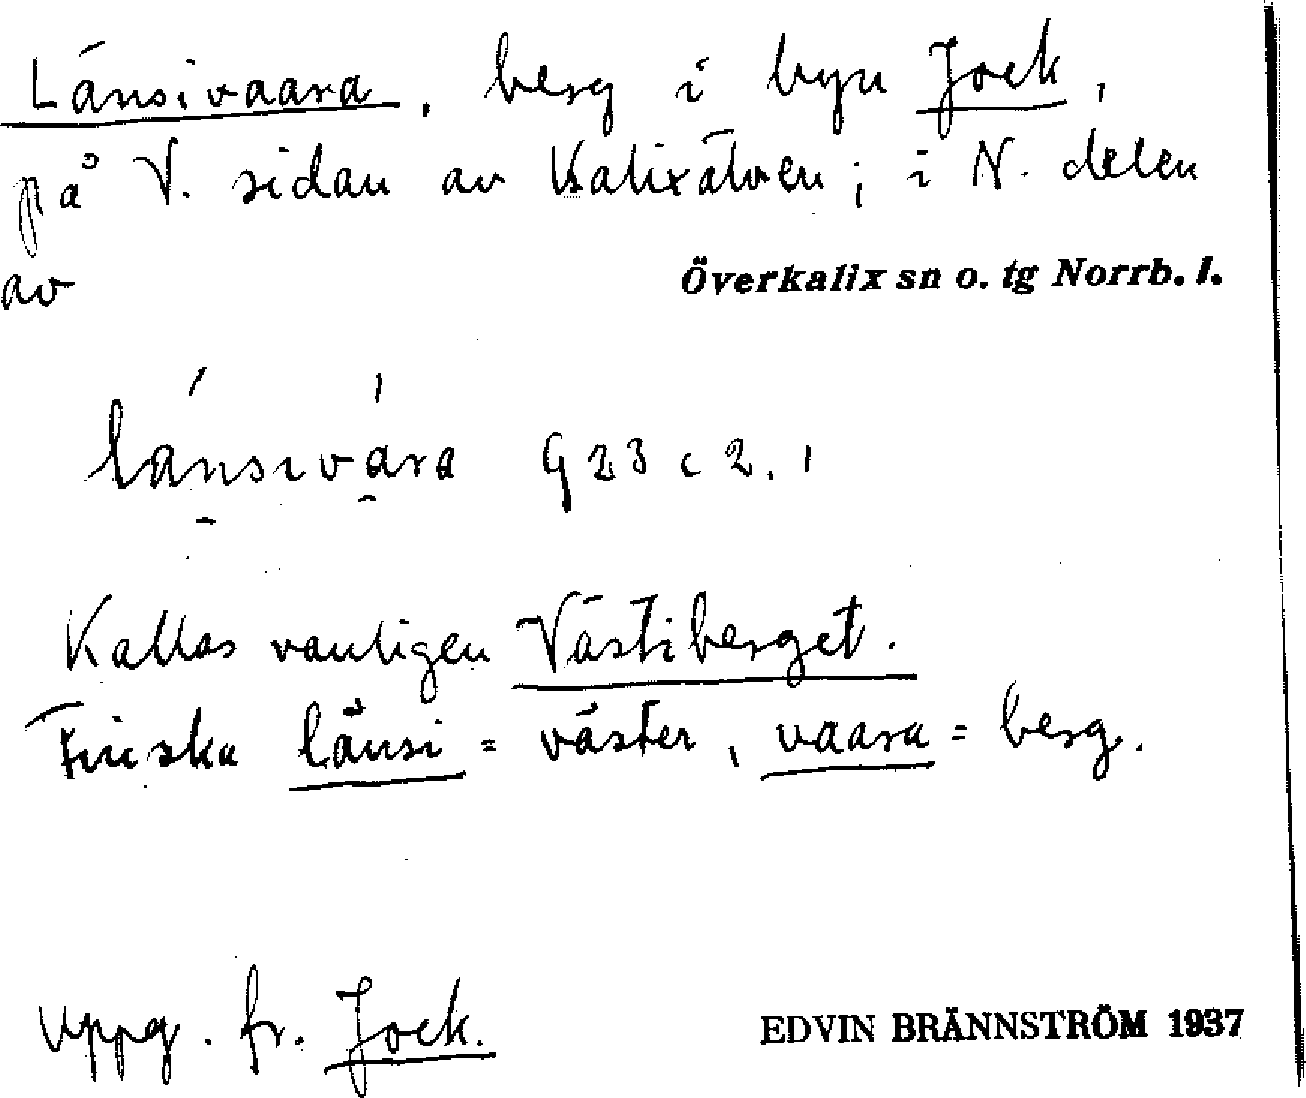 Länsivaara, berg i byn Jock,
på V. sidan av Kalixälven; i N. delen
av Överkalix sn o. tg Norrb. l.
länsivára G 23 c 2. 1
Kallas vanligen Västiberget.
Finska länsi = väster, vaara = berg.
Uppg. fr. Jock.
EDVIN BRÄNNSTRÖM 1937